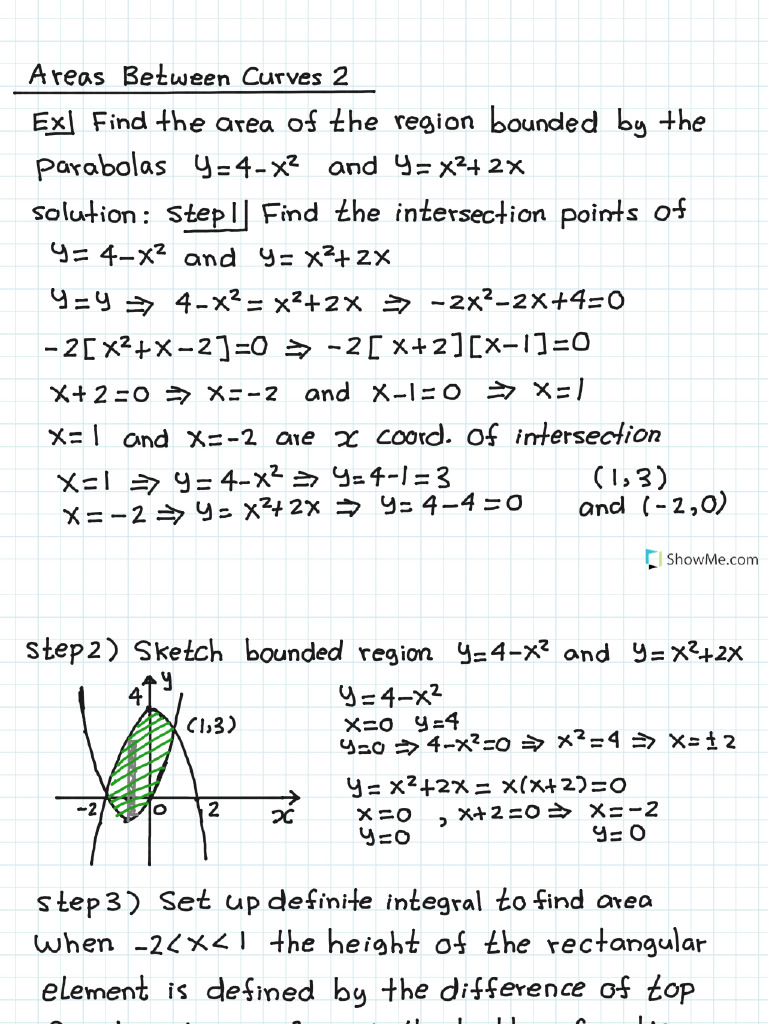 Areas Between Curves 2
Ex] Find the area of the region bounded by the
parabolas y=4-x² and y=x²+2x
solution: step1] Find the intersection points of
y=4-x² and y=x²+2x
y=y ⇒ 4-x²=x²+2x ⇒ -2x²-2x+4=0
-2[x²+x-2]=0 ⇒ -2[x+2][x-1]=0
x+2=0 ⇒ x=-2 and x-1=0 ⇒ x=1
x=1 and x=-2 are x coord. of intersection
x=1 ⇒ y=4-x² ⇒ y=4-1=3 (1,3)
x=-2 ⇒ y=x²+2x ⇒ y=4-4=0 and (-2,0)
ShowMe.com
step2) Sketch bounded region y=4-x² and y=x²+2x
y
4
(1,3)
-2 0 2 x
y=4-x²
x=0 y=4
y=0 ⇒ 4-x²=0 ⇒ x²=4 ⇒ x=±2
y=x²+2x=x(x+2)=0
x=0 , x+2=0 ⇒ x=-2
y=0 y=0
step3) Set up definite integral to find area
when -2<x<1 the height of the rectangular
element is defined by the difference of top